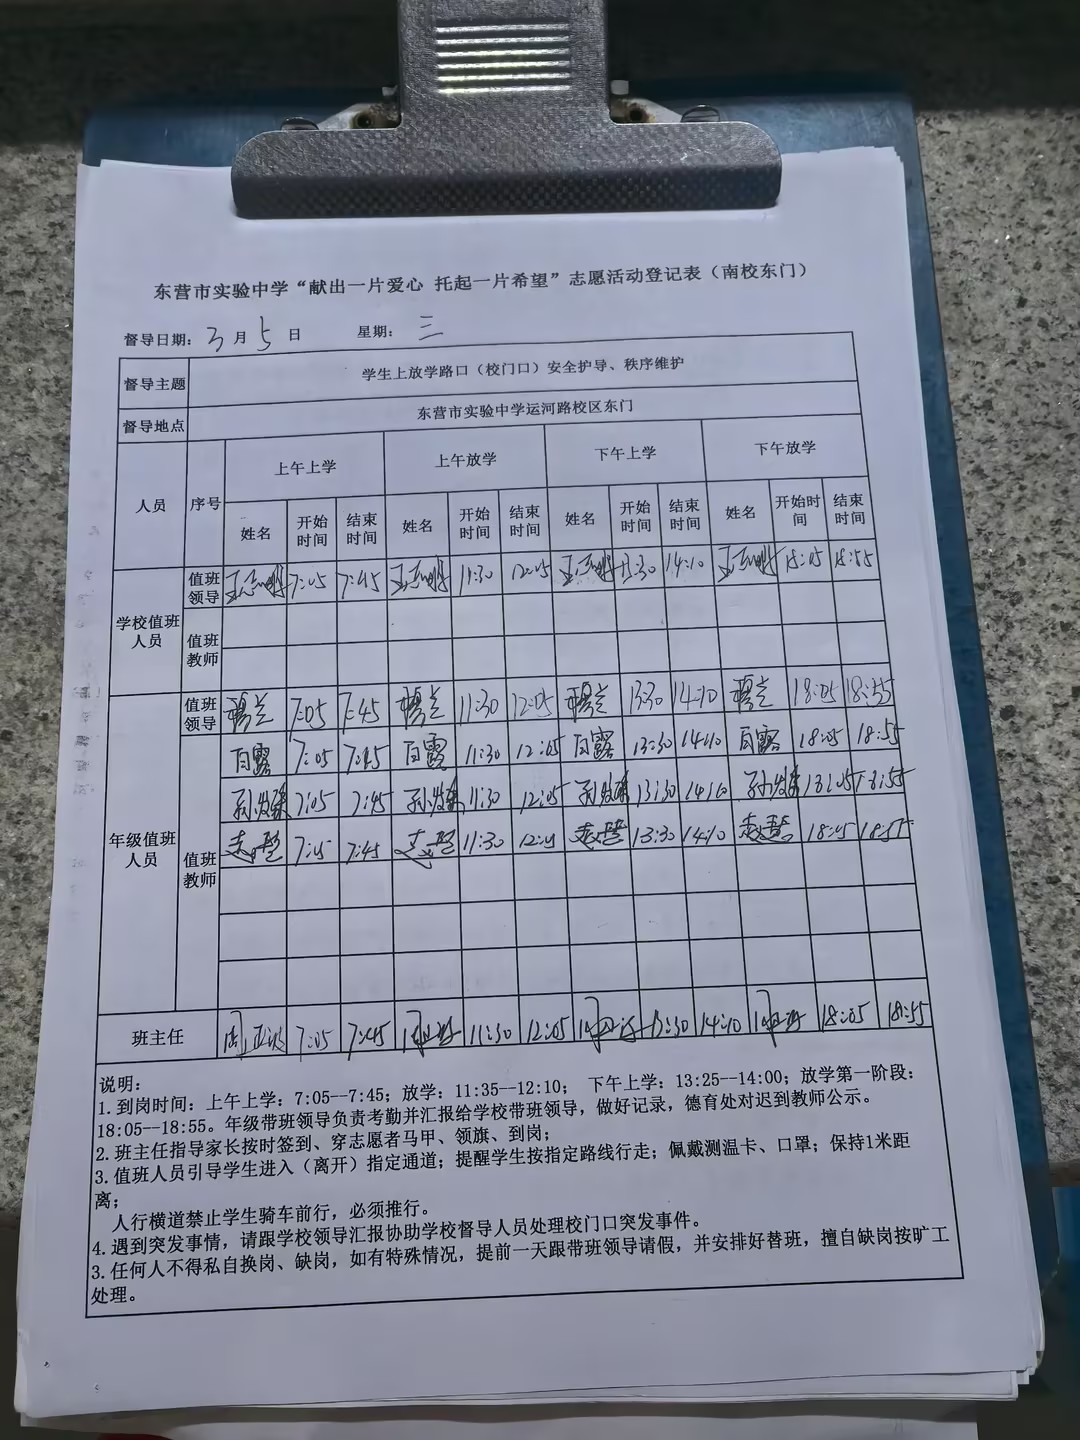 东营市实验中学“献出一片爱心 托起一片希望”志愿活动登记表（南校东门）
督导日期： 3 月 5 日 星期： 三
督导主题 学生上放学路口（校门口）安全护导、秩序维护
督导地点 东营市实验中学运河路校区东门
人员 序号 上午上学 上午放学 下午上学 下午放学
姓名 开始时间 结束时间 姓名 开始时间 结束时间 姓名 开始时间 结束时间 姓名 开始时间 结束时间
学校值班人员 值班领导 7:05 7:45 11:30 12:05 13:30 14:10 18:05 18:55
值班教师
年级值班人员 值班领导 7:05 7:45 11:30 12:05 13:30 14:10 18:05 18:55
值班教师 白露 7:05 7:45 白露 11:30 12:05 白露 13:30 14:10 白露 18:05 18:55
7:05 7:45 11:30 12:05 13:30 14:10 18:05 18:55
7:05 7:45 11:30 12:05 13:30 14:10 18:05 18:55
班主任 7:05 7:45 11:30 12:05 13:30 14:10 18:05 18:55
说明：
1. 到岗时间：上午上学：7:05--7:45；放学：11:35--12:10； 下午上学：13:25--14:00；放学第一阶段：
18:05--18:55。年级带班领导负责考勤并汇报给学校带班领导，做好记录，德育处对迟到教师公示。
2. 班主任指导家长按时签到、穿志愿者马甲、领旗、到岗；
3. 值班人员引导学生进入（离开）指定通道；提醒学生按指定路线行走；佩戴测温卡、口罩；保持1米距
离；
人行横道禁止学生骑车前行，必须推行。
4. 遇到突发事情，请跟学校领导汇报协助学校督导人员处理校门口突发事件。
3. 任何人不得私自换岗、缺岗，如有特殊情况，提前一天跟带班领导请假，并安排好替班，擅自缺岗按旷工
处理。